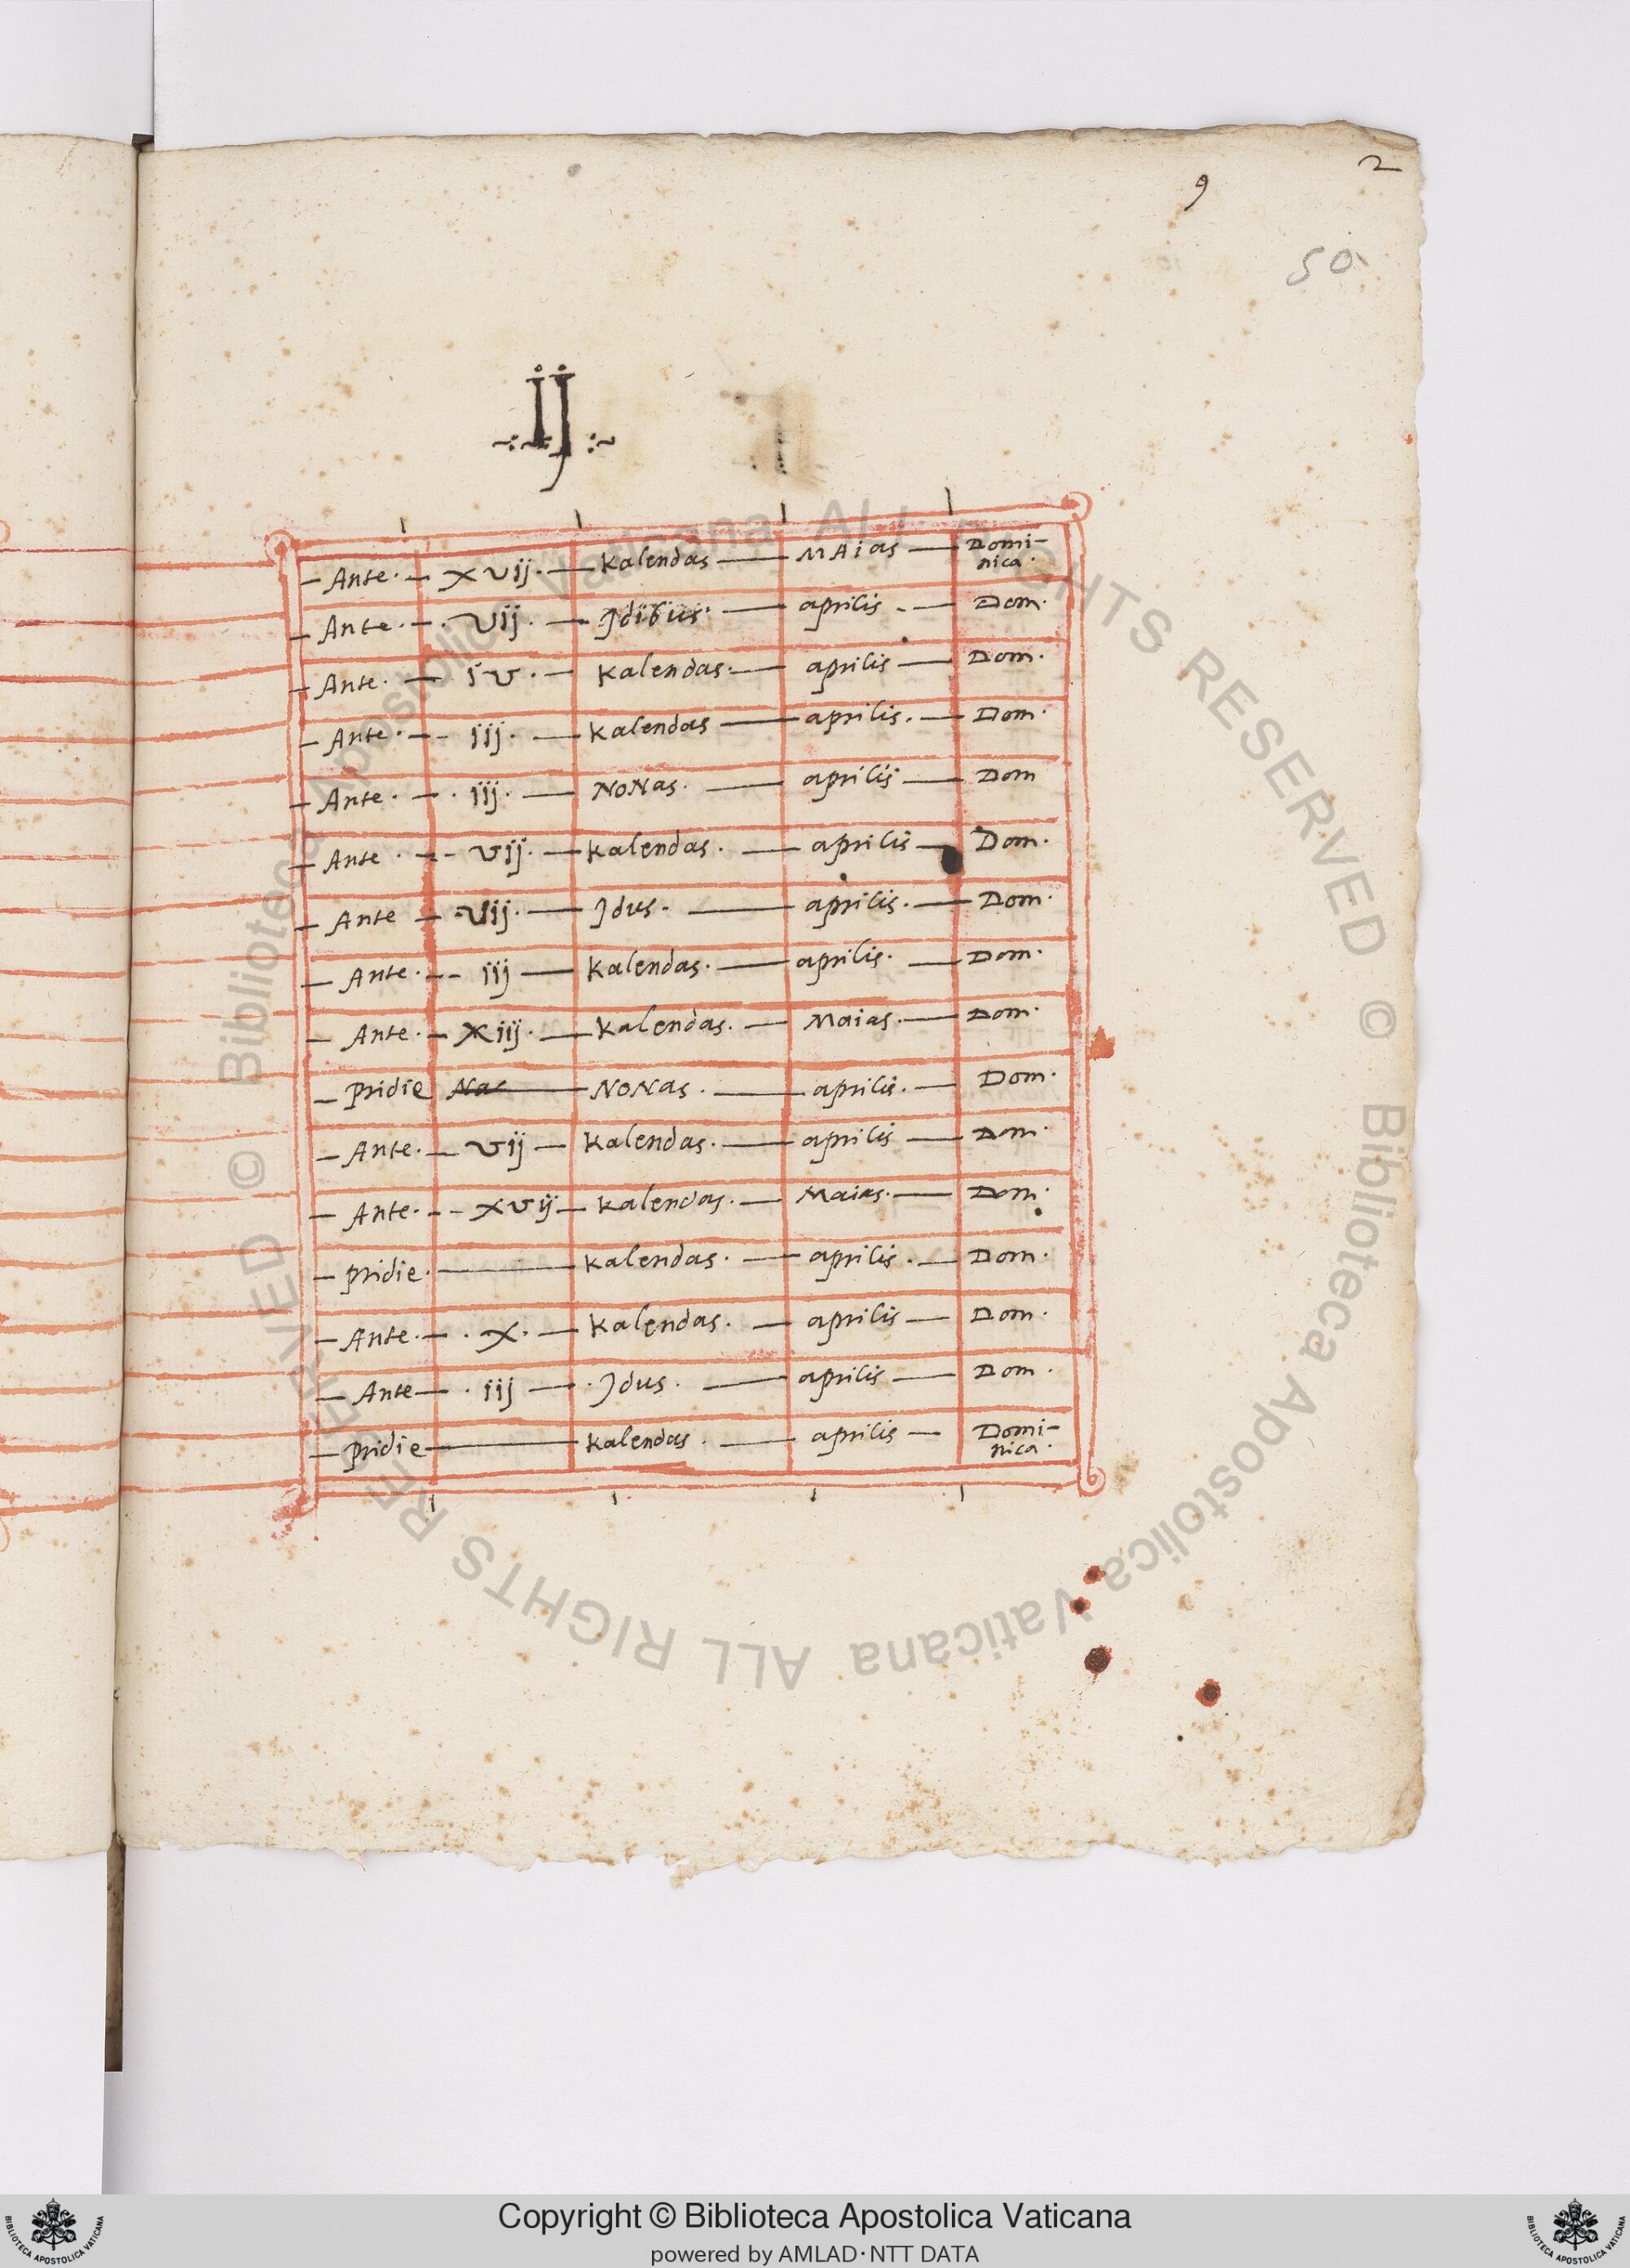 2
9
50
ij
Ante. xvij. Kalendas MAias Domi-
nica.
Ante. vij. Jdibus. aprilis. Dom.
Ante. iv. Kalendas. aprilis Dom.
Ante. iij. Kalendas aprilis. Dom.
Ante. iij. NoNas. aprilis Dom
Ante. vij. Kalendas. aprilis Dom.
Ante vij. Jdus. aprilis. Dom.
Ante. iij Kalendas. aprilis. Dom.
Ante. xiij. Kalendas. Maias. Dom.
Pridie Nas NoNas. aprilis. Dom.
Ante. vij Kalendas. aprilis Dom.
Ante. xvij Kalendas. Maias. Dom.
pridie. Kalendas. aprilis. Dom.
Ante. x. Kalendas. aprilis Dom.
Ante iij Jdus. aprilis Dom.
Pridie Kalendas. aprilis Domi-
nica.
© Biblioteca Apostolica Vaticana ALL RIGHTS RESERVED © Biblioteca Apostolica Vaticana ALL RIGHTS RESERVED
Copyright © Biblioteca Apostolica Vaticana
powered by AMLAD·NTT DATA
BIBLIOTECA APOSTOLICA VATICANA
BIBLIOTECA APOSTOLICA VATICANA